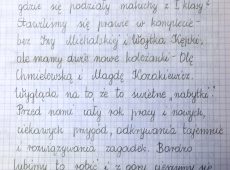 gdzie się podziały maluchy z I klasy?
Stawiliśmy się prawie w komplecie -
bez Izy Michalskiej i Wojtka Kępki,
ale mamy dwie nowe koleżanki - Olę
Chmielowską i Magdę Kozakiewicz.
Wygląda na to, że to świetne „nabytki".
Przed nami cały rok pracy i nowych,
ciekawych przygód, odkrywania tajemnic
i rozwiązywania zagadek. Bardzo
lubimy to robić i z góry cieszymy się